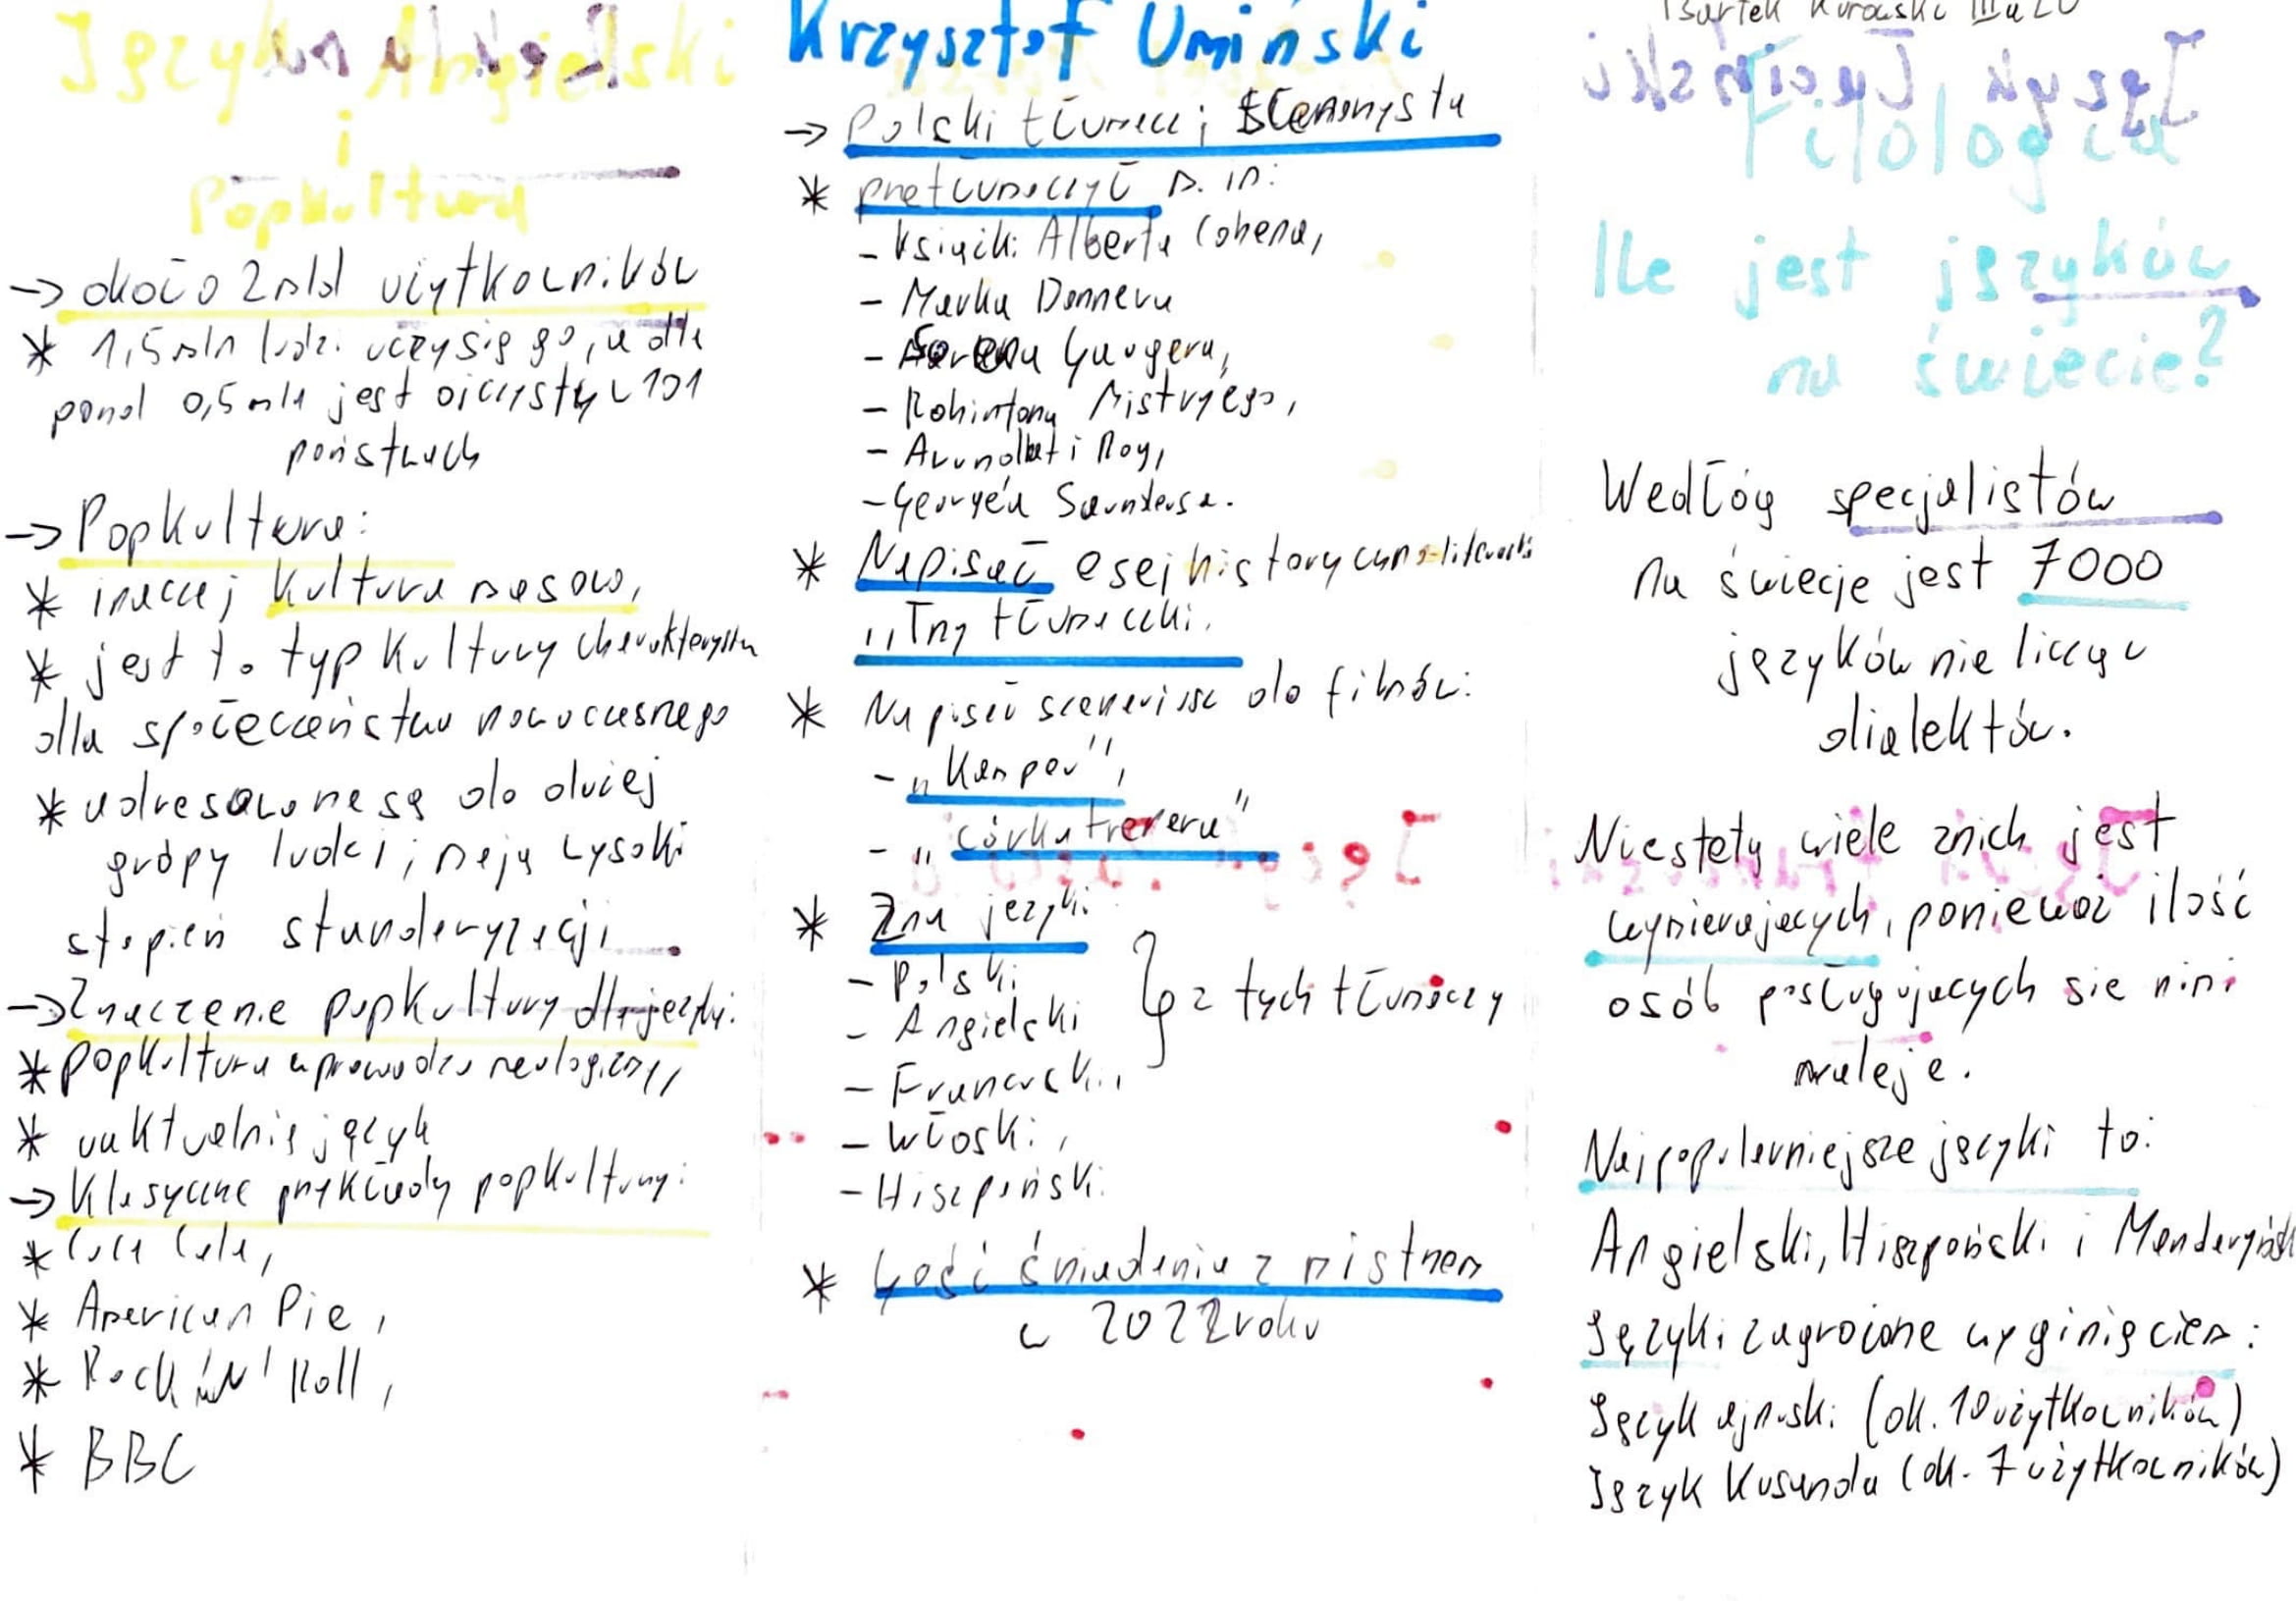 Język Angielski
i
Popkultura
→ około 2 mld użytkowników
* 1,5 mln ludzi uczy się go, a dla
ponad 0,5 mld jest ojczysty w 101
państwach
→ Popkultura:
* inaczej kultura masowa,
* jest to typ kultury charakterystyczn
dla społeczeństwa nowoczesnego
* adresowane są do dużej
grópy ludzi i mają wysoki
stopień standaryzacji
→ Znaczenie popkultury dla języki:
* popkultura wprowadza neologizmy,
* uaktualnia język
→ Klasyczne przykłady popkultury:
* Coca Cola,
* American Pie,
* Rock 'N' Roll,
* BBC
Krzysztof Umiński
→ Polski tłumacz i scenarzysta
* przetłumaczył m. in:
- Książki Alberta Cohena,
- Marka Dannera
- Sorena Gaugera,
- Rohintona Mistry'ego,
- Arundhati Roy,
- George'a Saundersa.
* Napisał esej historyczno-literacki
"Trzy tłumaczki.
* Napisał scenariusz do filmów:
- "Kamper",
- "Córka trenera"
* Zna języki:
- Polski
- Angielski
- Francuski,
z tych tłumaczy
- Włoski,
- Hiszpański.
* Gość śniadania z mistrzem
w 2022 roku
Bartek Kurowski III a LO
Filologia
Ile jest języków
na świecie?
Wedłóg specjalistów
na świecie jest 7000
języków nie licząc
dialektów.
Niestety wiele znich jest
wymierających, ponieważ ilość
osób posługujących sie nimi
maleje.
Najpopularniejsze języki to:
Angielski, Hiszpański i Mandaryński
Języki zagrożone wyginięciem:
Język ajnuski (ok. 10 użytkowników)
Język Kusunda (ok. 7 użytkowników)